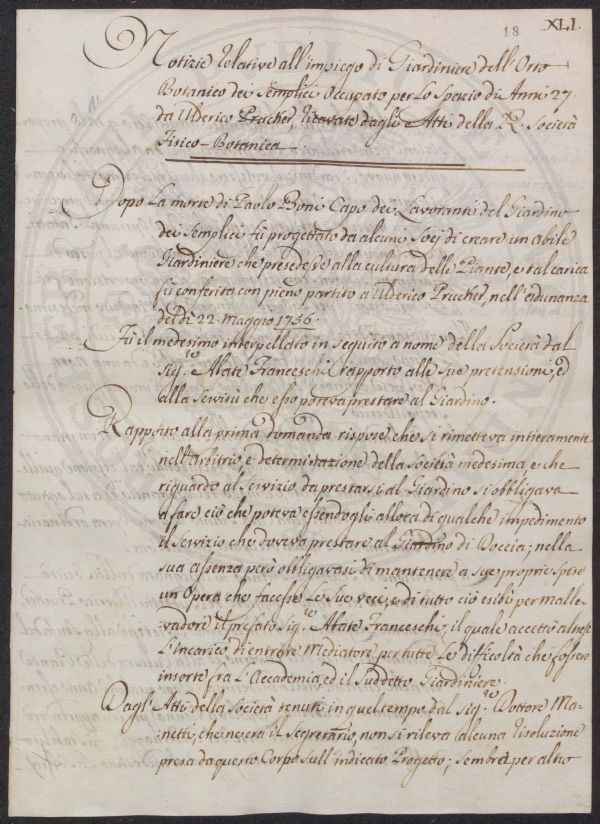 18 XLI.
Notizie relative all'impiego di Giardiniere dell'Orto
Botanico dei Semplici occupato per lo spazio di Anni 27.
da Ulderico Prucher, ricavate dagli Atti della R. Società
Fisico-Botanica.
Dopo la morte di Paolo Boni Capo dei Lavoranti del Giardino
dei Semplici fu progettato da alcuni Socj di creare un abile
Giardiniere che presedesse alla cultura delle Piante, e tal carica
fu conferita con pieno partito a Ulderico Prucher, nell'adunanza
del dì 22. Maggio 1756.
Fu il medesimo interpellato in seguito a nome della Società dal
Sig.re Abate Franceschi rapporto alle sue pretensioni, ed
alla servitù che esso poteva prestare al Giardino.
Rapporto alla prima domanda rispose che si rimetteva intieramente
nell'arbitrio, e determinazione della Società medesima, e che
riguardo al servizio da prestarsi al Giardino si obbligava
a fare ciò che poteva essendogli allora di qualche impedimento
il servizio che doveva prestare al Giardino di Doccia; nella
sua assenza però obbligavasi di mantenere a sue proprie spese
un Opera che facesse le sue veci, e di tutto ciò esibì per Malle-
vadore il prefato Sig.re Abate Franceschi, il quale accettò
l'incarico di entrare Mediatore per tutte le difficoltà che fossero
insorte fra l'Accademia, ed il suddetto Giardiniere.
Dagl'Atti della Società tenuti in quel tempo dal Sig.re Dottore Ma-
netti, che ne era il Segretario, non si rileva alcuna risoluzione
presa da questo Corpo sull'indicato Progetto; sembra per altro